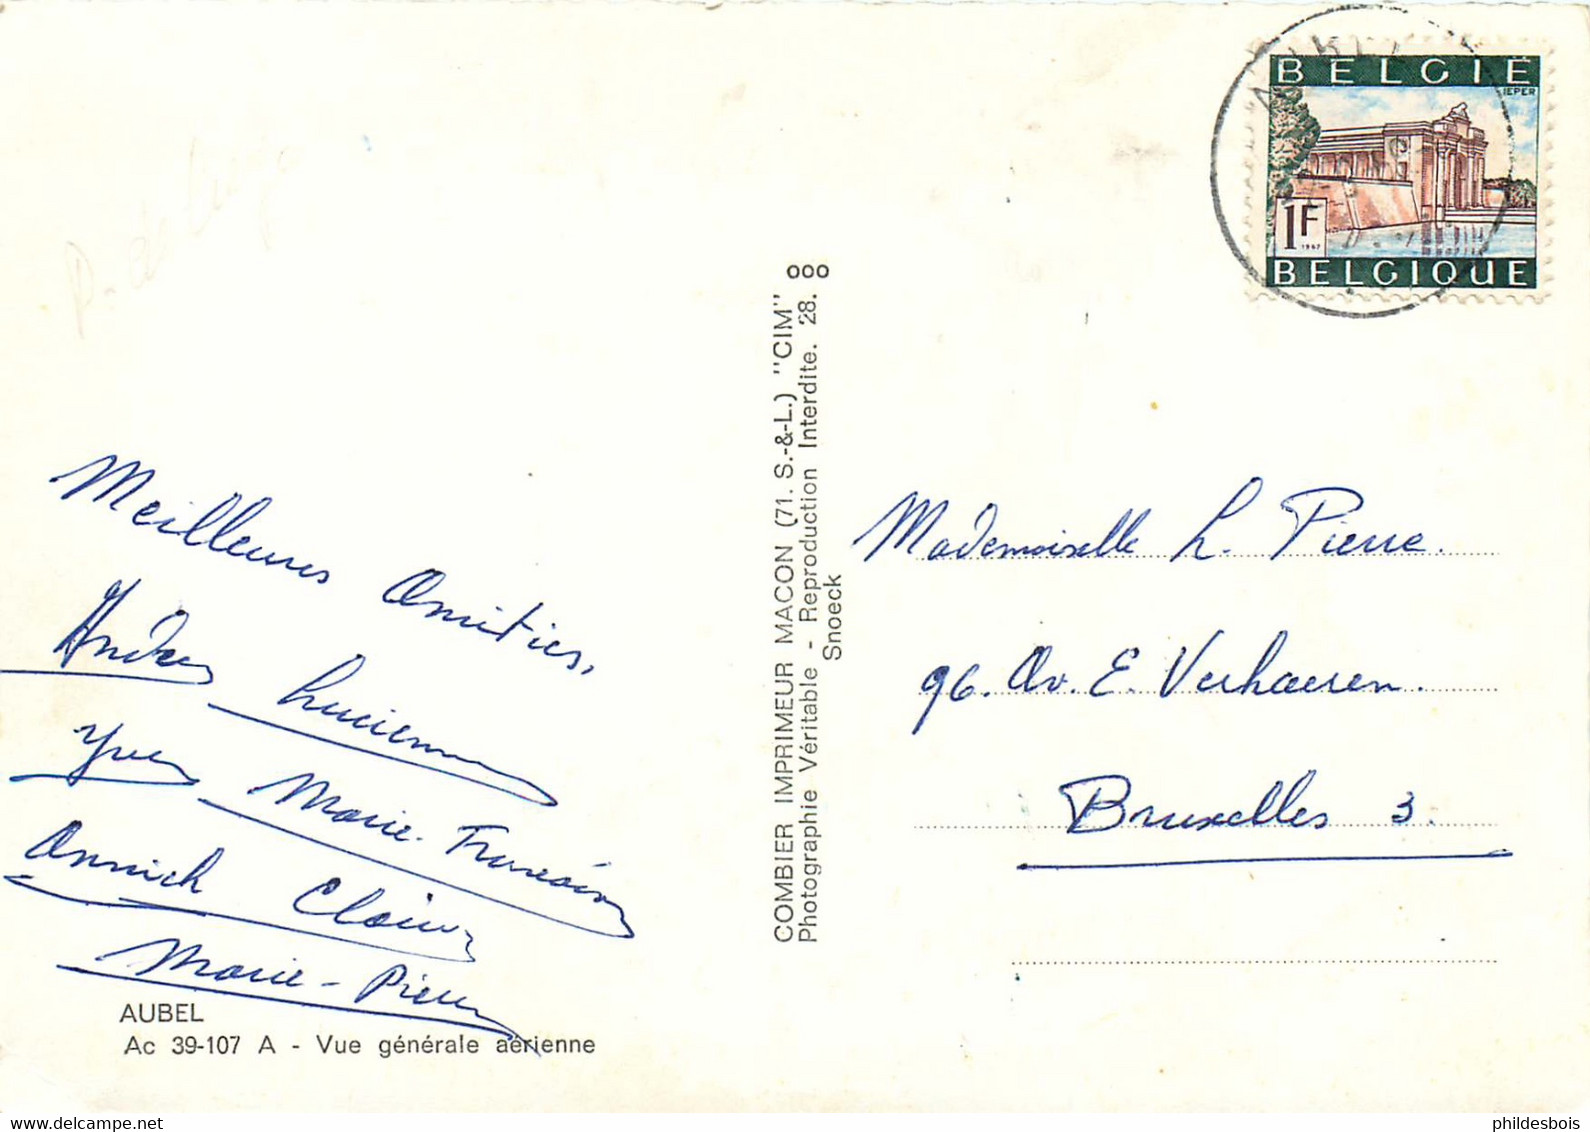 P. de Liège
Meilleures Amitiés,
Andrée Lucienne
Yves Marie-Françoise
Annick Claire
Marie-Pierre
AUBEL
Ac 39-107 A - Vue générale aérienne
COMBIER IMPRIMEUR MACON (71. S.-&-L.) "CIM"
Photographie Véritable - Reproduction Interdite. 28. ooo
Snoeck
AUBEL
BELGIË
IEPER
1F
1967
BELGIQUE
Mademoiselle L. Pierre.
96. Av. E. Verhaeren.
Bruxelles 3.
phildesbois